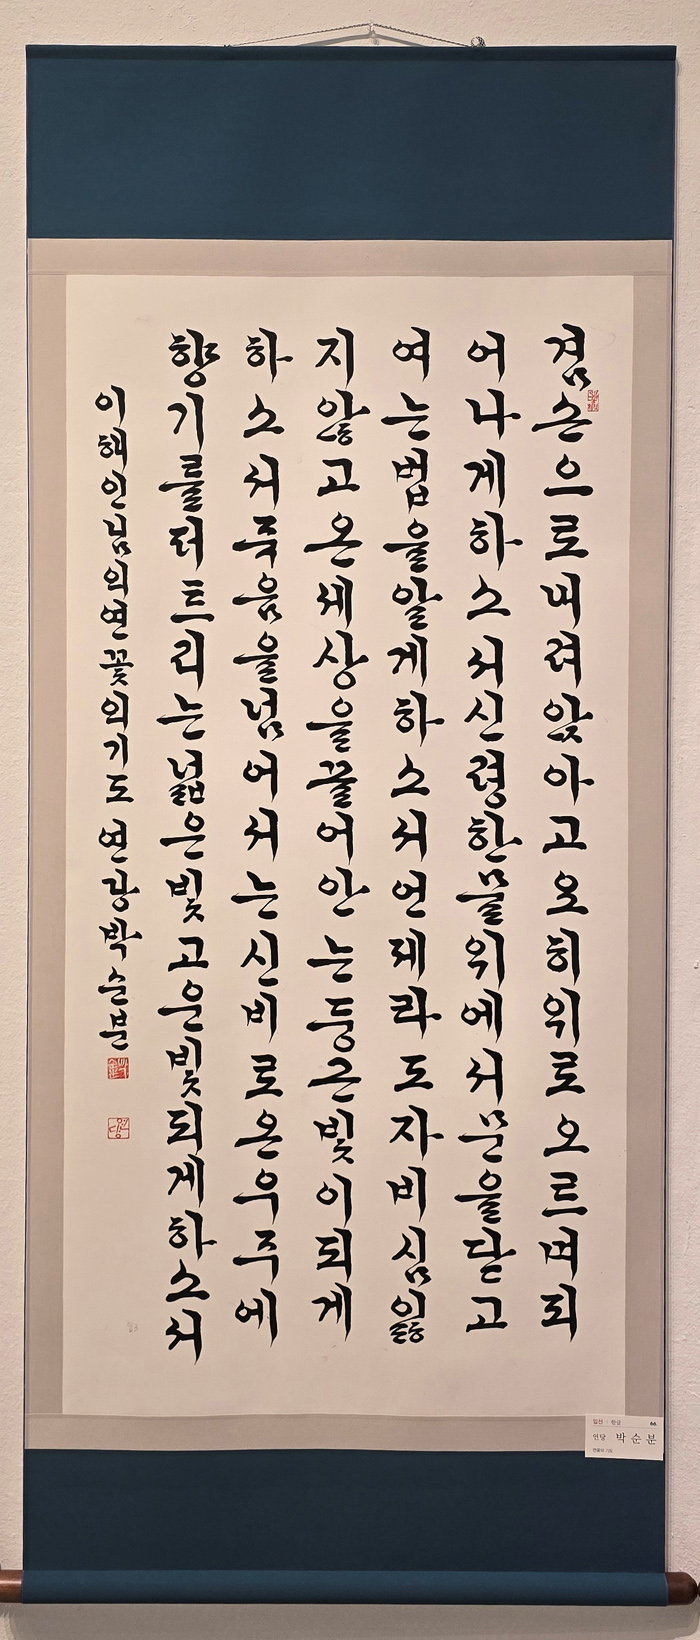 겸손으로내려앉아고요히위로오르며피
어나게하소서신령한물위에서문을닫고
여는법을알게하소서언제라도자비심잃
지않고온세상을끌어안는둥근빛이되게
하소서죽음을넘어서는신비로온우주에
향기를퍼트리는넓은빛고운빛되게하소서
이해인님의연꽃의기도 연당박순분
입선 · 한글 66
연당 박순분
연꽃의 기도